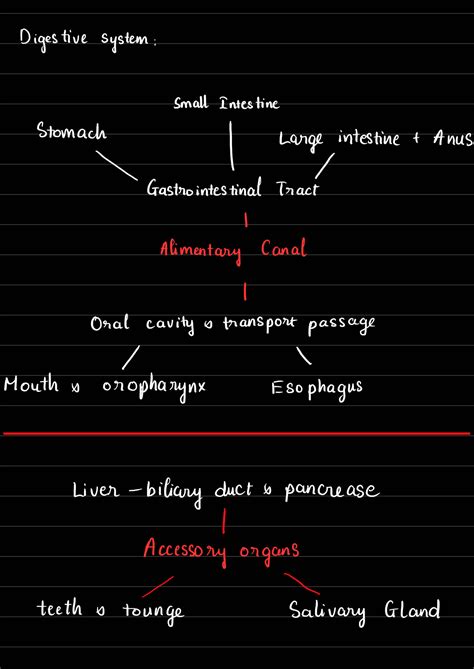 Digestive system:
Small Intestine
Stomach
Large intestine + Anus
Gastrointestinal Tract
Alimentary Canal
Oral cavity & transport passage
Mouth & oropharynx
Esophagus
Liver - biliary duct & pancrease
Accessory organs
teeth & tounge
Salivary Gland